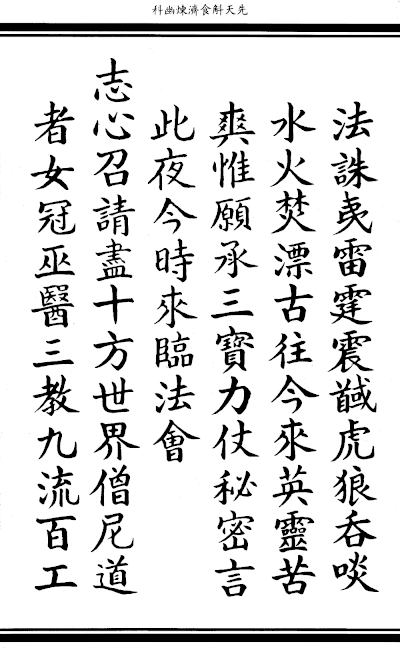 先天斛食濟煉幽科
法誅夷雷霆震馘虎狼吞啖
水火焚漂古往今來英靈苦
爽惟願承三寶力仗秘密言
此夜今時來臨法會
志心召請盡十方世界僧尼道
者女冠巫醫三教九流百工